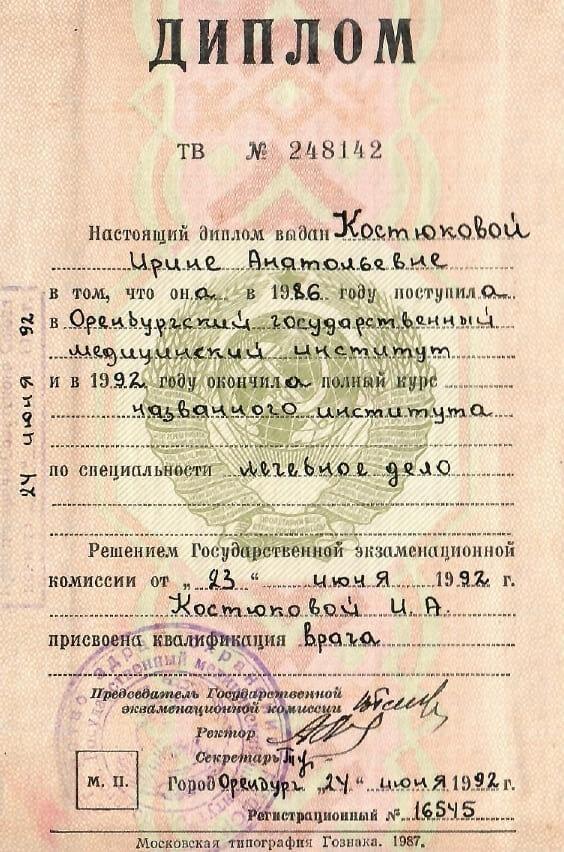 ДИПЛОМ
ТВ № 248142
Настоящий диплом выдан Костюковой
Ирине Анатольевне
в том, что она в 1986 году поступила
в Оренбургский государственный
медицинский институт
и в 1992 году окончила полный курс
названного института
по специальности лечебное дело
Решением Государственной экзаменационной
комиссии от „23“ июня 1992 г.
Костюковой И. А.
присвоена квалификация врача
Председатель Государственной
экзаменационной комиссии
Ректор
Секретарь
М. П.
Город Оренбург „24“ июня 1992 г.
Регистрационный № 16545
Московская типография Гознака. 1987.
24 июня 92